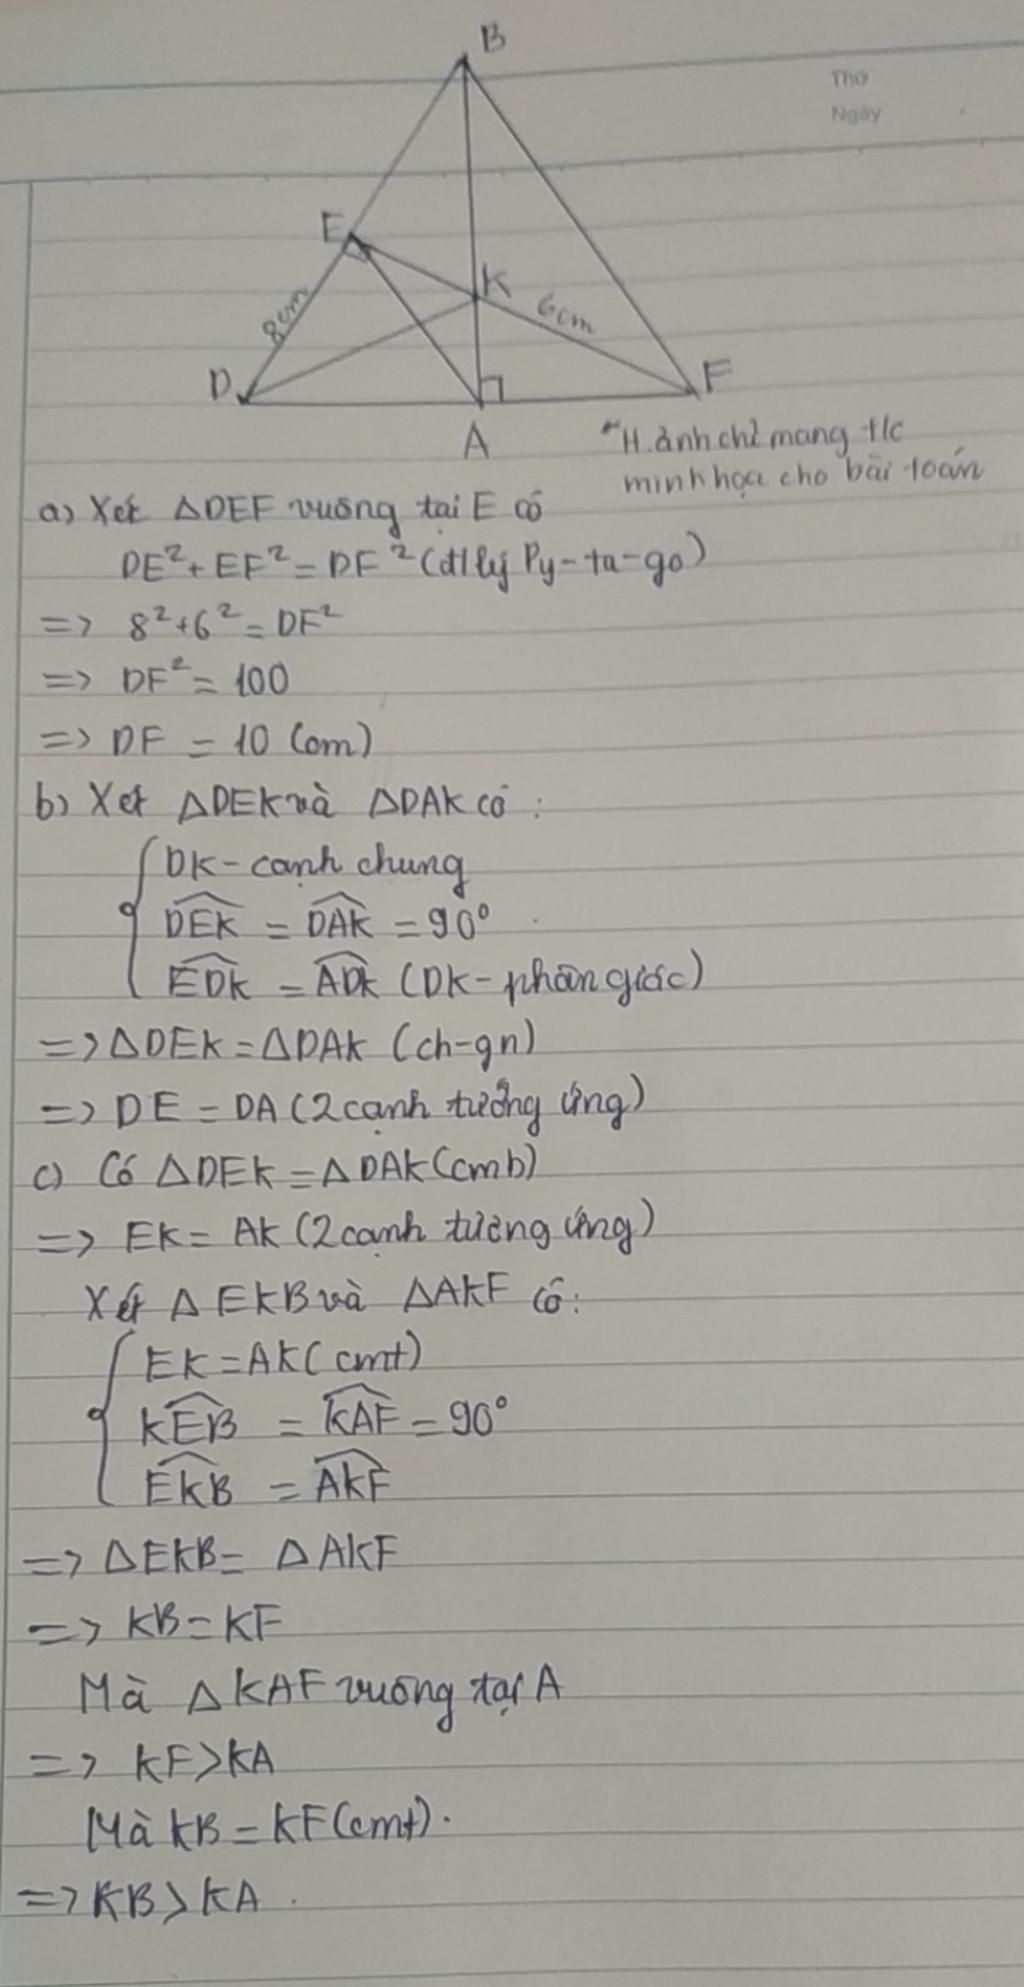 B
Thứ
Ngày
E
K
8cm
6cm
D
F
A
*H.ảnh chỉ mang t/c
minh họa cho bài toán
a) Xét △DEF vuông tại E có
DE² + EF² = DF² (đ/lý Py-ta-go)
=> 8² + 6² = DF²
=> DF² = 100
=> DF = 10 (cm)
b) Xét △DEK và △DAK có:
DK - cạnh chung
\widehat{DEK} = \widehat{DAK} = 90°
\widehat{EDK} = \widehat{ADK} (DK - phân giác)
=> △DEK = △DAK (ch-gn)
=> DE = DA (2 cạnh tưởng ứng)
c) Có △DEK = △DAK (cmb)
=> EK = AK (2 cạnh tương ứng)
Xét △EKB và △AKF có:
EK = AK (cmt)
\widehat{KEB} = \widehat{KAF} = 90°
\widehat{EKB} = \widehat{AKF}
=> △EKB = △AKF
=> KB = KF
Mà △KAF vuông tại A
=> KF > KA
Mà KB = KF (cmt).
=> KB > KA.